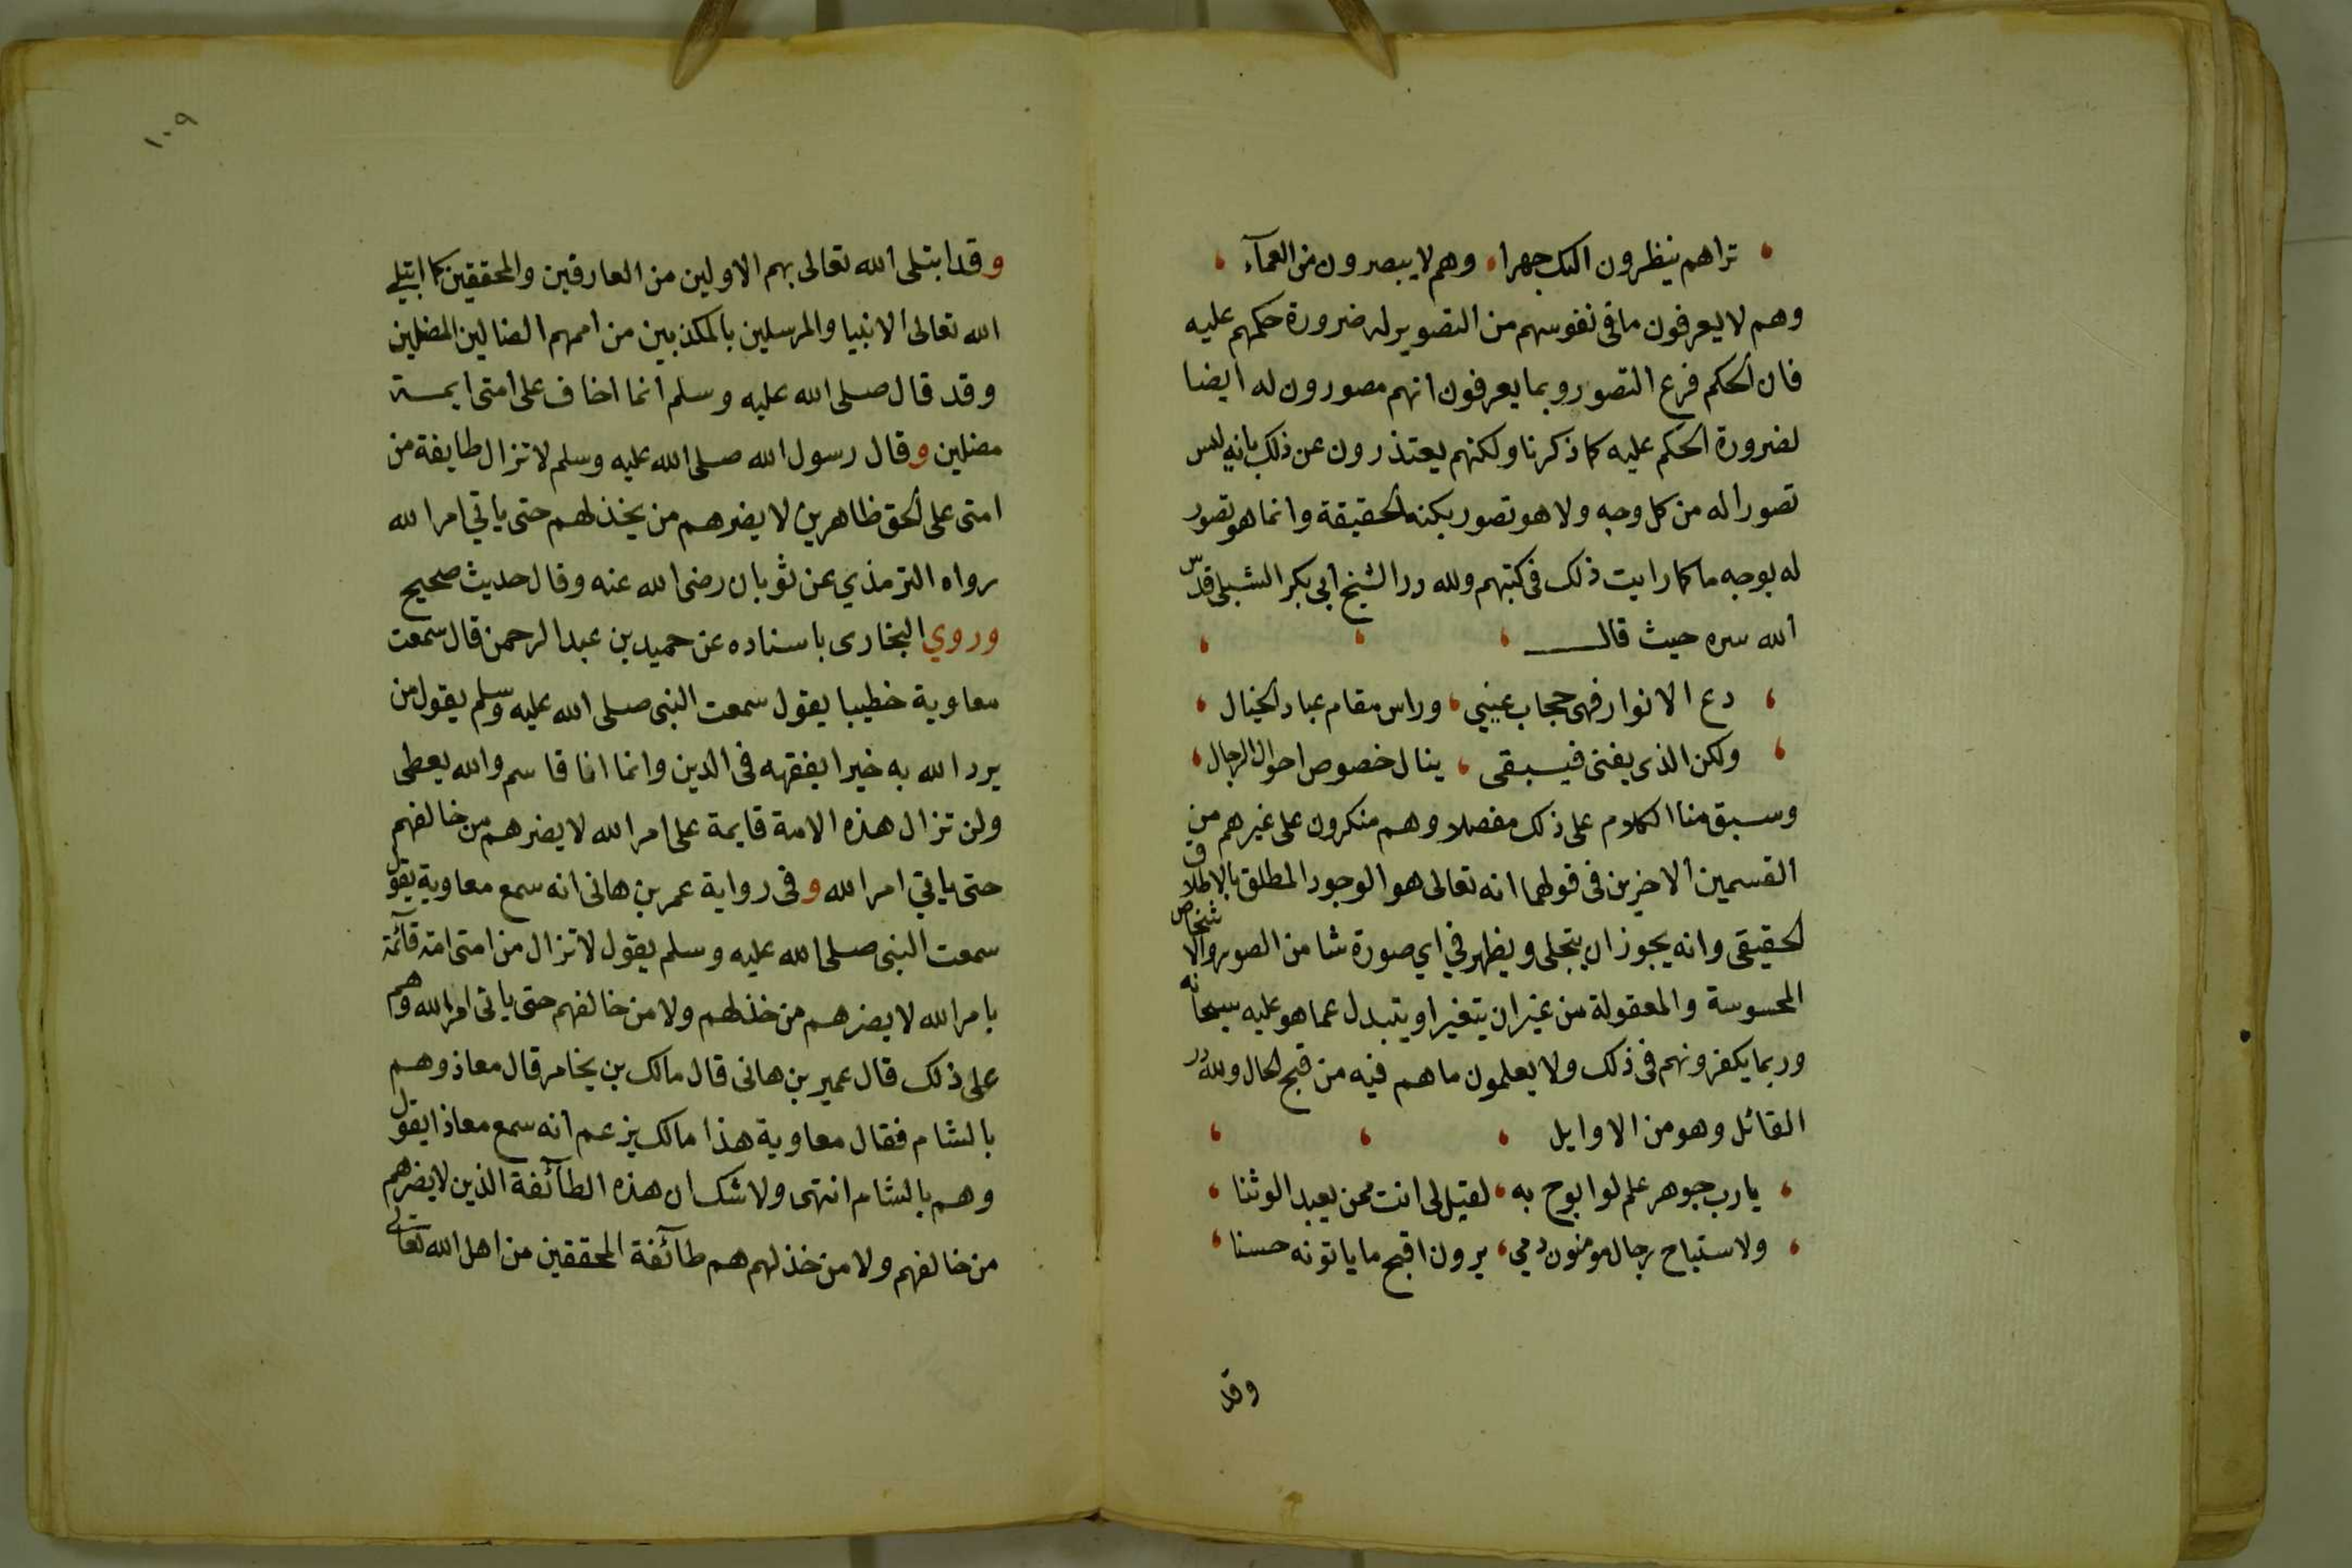 تراهم ينظرون اليك جهرا، وهم لا يبصرون من العمآء
وهم لا يعرفون ما في نفوسهم من التصوير له ضرورة حكمهم عليه
فان الحكم فرع التصور وبما يعرفون انهم مصورون له ايضا
لضرورة الحكم عليه كما ذكرنا ولكنهم يعتذرون عن ذلك بانه ليس
تصورا له من كل وجه ولا هو تصور بكنه الحقيقة وانما هو تصور
له بوجه ما كما رايت ذلك في كتبهم ولله در الشيخ ابي بكر الشبلي قدس
الله سره حيث قال
دع الانوار فهي حجاب عيني، وراس مقام عباد الخيال
ولكن الذي يفنى فيبقى، ينال خصوص احوال الرجال
وسبق منا الكلام على ذلك مفصلا وهم منكرون على غيرهم من
القسمين الاخيرين في قولهما انه تعالى هو الوجود المطلق بالاطلاق
الحقيقي وانه يجوز ان يتجلى ويظهر في اي صورة شا من الصور والاشخاص
المحسوسة والمعقولة من غير ان يتغير او يتبدل عما هو عليه سبحانه
وربما يكفرونهم في ذلك ولا يعلمون ما هم فيه من قبح الحال ولله در
القائل وهو من الاوايل
يا رب جوهر علم لو ابوح به، لقيل لي انت ممن يعبد الوثنا
ولاستباح رجال مومنون دمي، يرون اقبح ما ياتونه حسنا
وقد
١٠٩
وقد ابتلى الله تعالى بهم الاولين من العارفين والمحققين كما ابتلي
الله تعالى الانبيا والمرسلين بالمكذبين من اممهم الضالين المضلين
وقد قال صلى الله عليه وسلم انما اخاف على امتى ايمة
مضلين وقال رسول الله صلى الله عليه وسلم لا تزال طايفة من
امتى على الحق ظاهرين لا يضرهم من يخذلهم حتى ياتي امر الله
رواه الترمذي عن ثوبان رضى الله عنه وقال حديث صحيح
وروي البخارى باسناده عن حميد بن عبد الرحمن قال سمعت
معاوية خطيبا يقول سمعت النبى صلى الله عليه وسلم يقول من
يرد الله به خيرا يفقهه في الدين وانما انا قاسم والله يعطى
ولن تزال هذه الامة قايمة على امر الله لا يضرهم من خالفهم
حتى ياتي امر الله وفي رواية عمر بن هانى انه سمع معاوية يقول
سمعت النبى صلى الله عليه وسلم يقول لا تزال من امتى امة قآئمة
بامر الله لا يضرهم من خذلهم ولا من خالفهم حتى ياتى امر الله وهم
على ذلك قال عمير بن هانى قال مالك بن يخامر قال معاذ وهم
بالشام فقال معاوية هذا مالك يزعم انه سمع معاذا يقول
وهم بالشام انتهى ولا شك ان هذه الطآئفة الذين لا يضرهم
من خالفهم ولا من خذلهم هم طآئفة المحققين من اهل الله تعالى